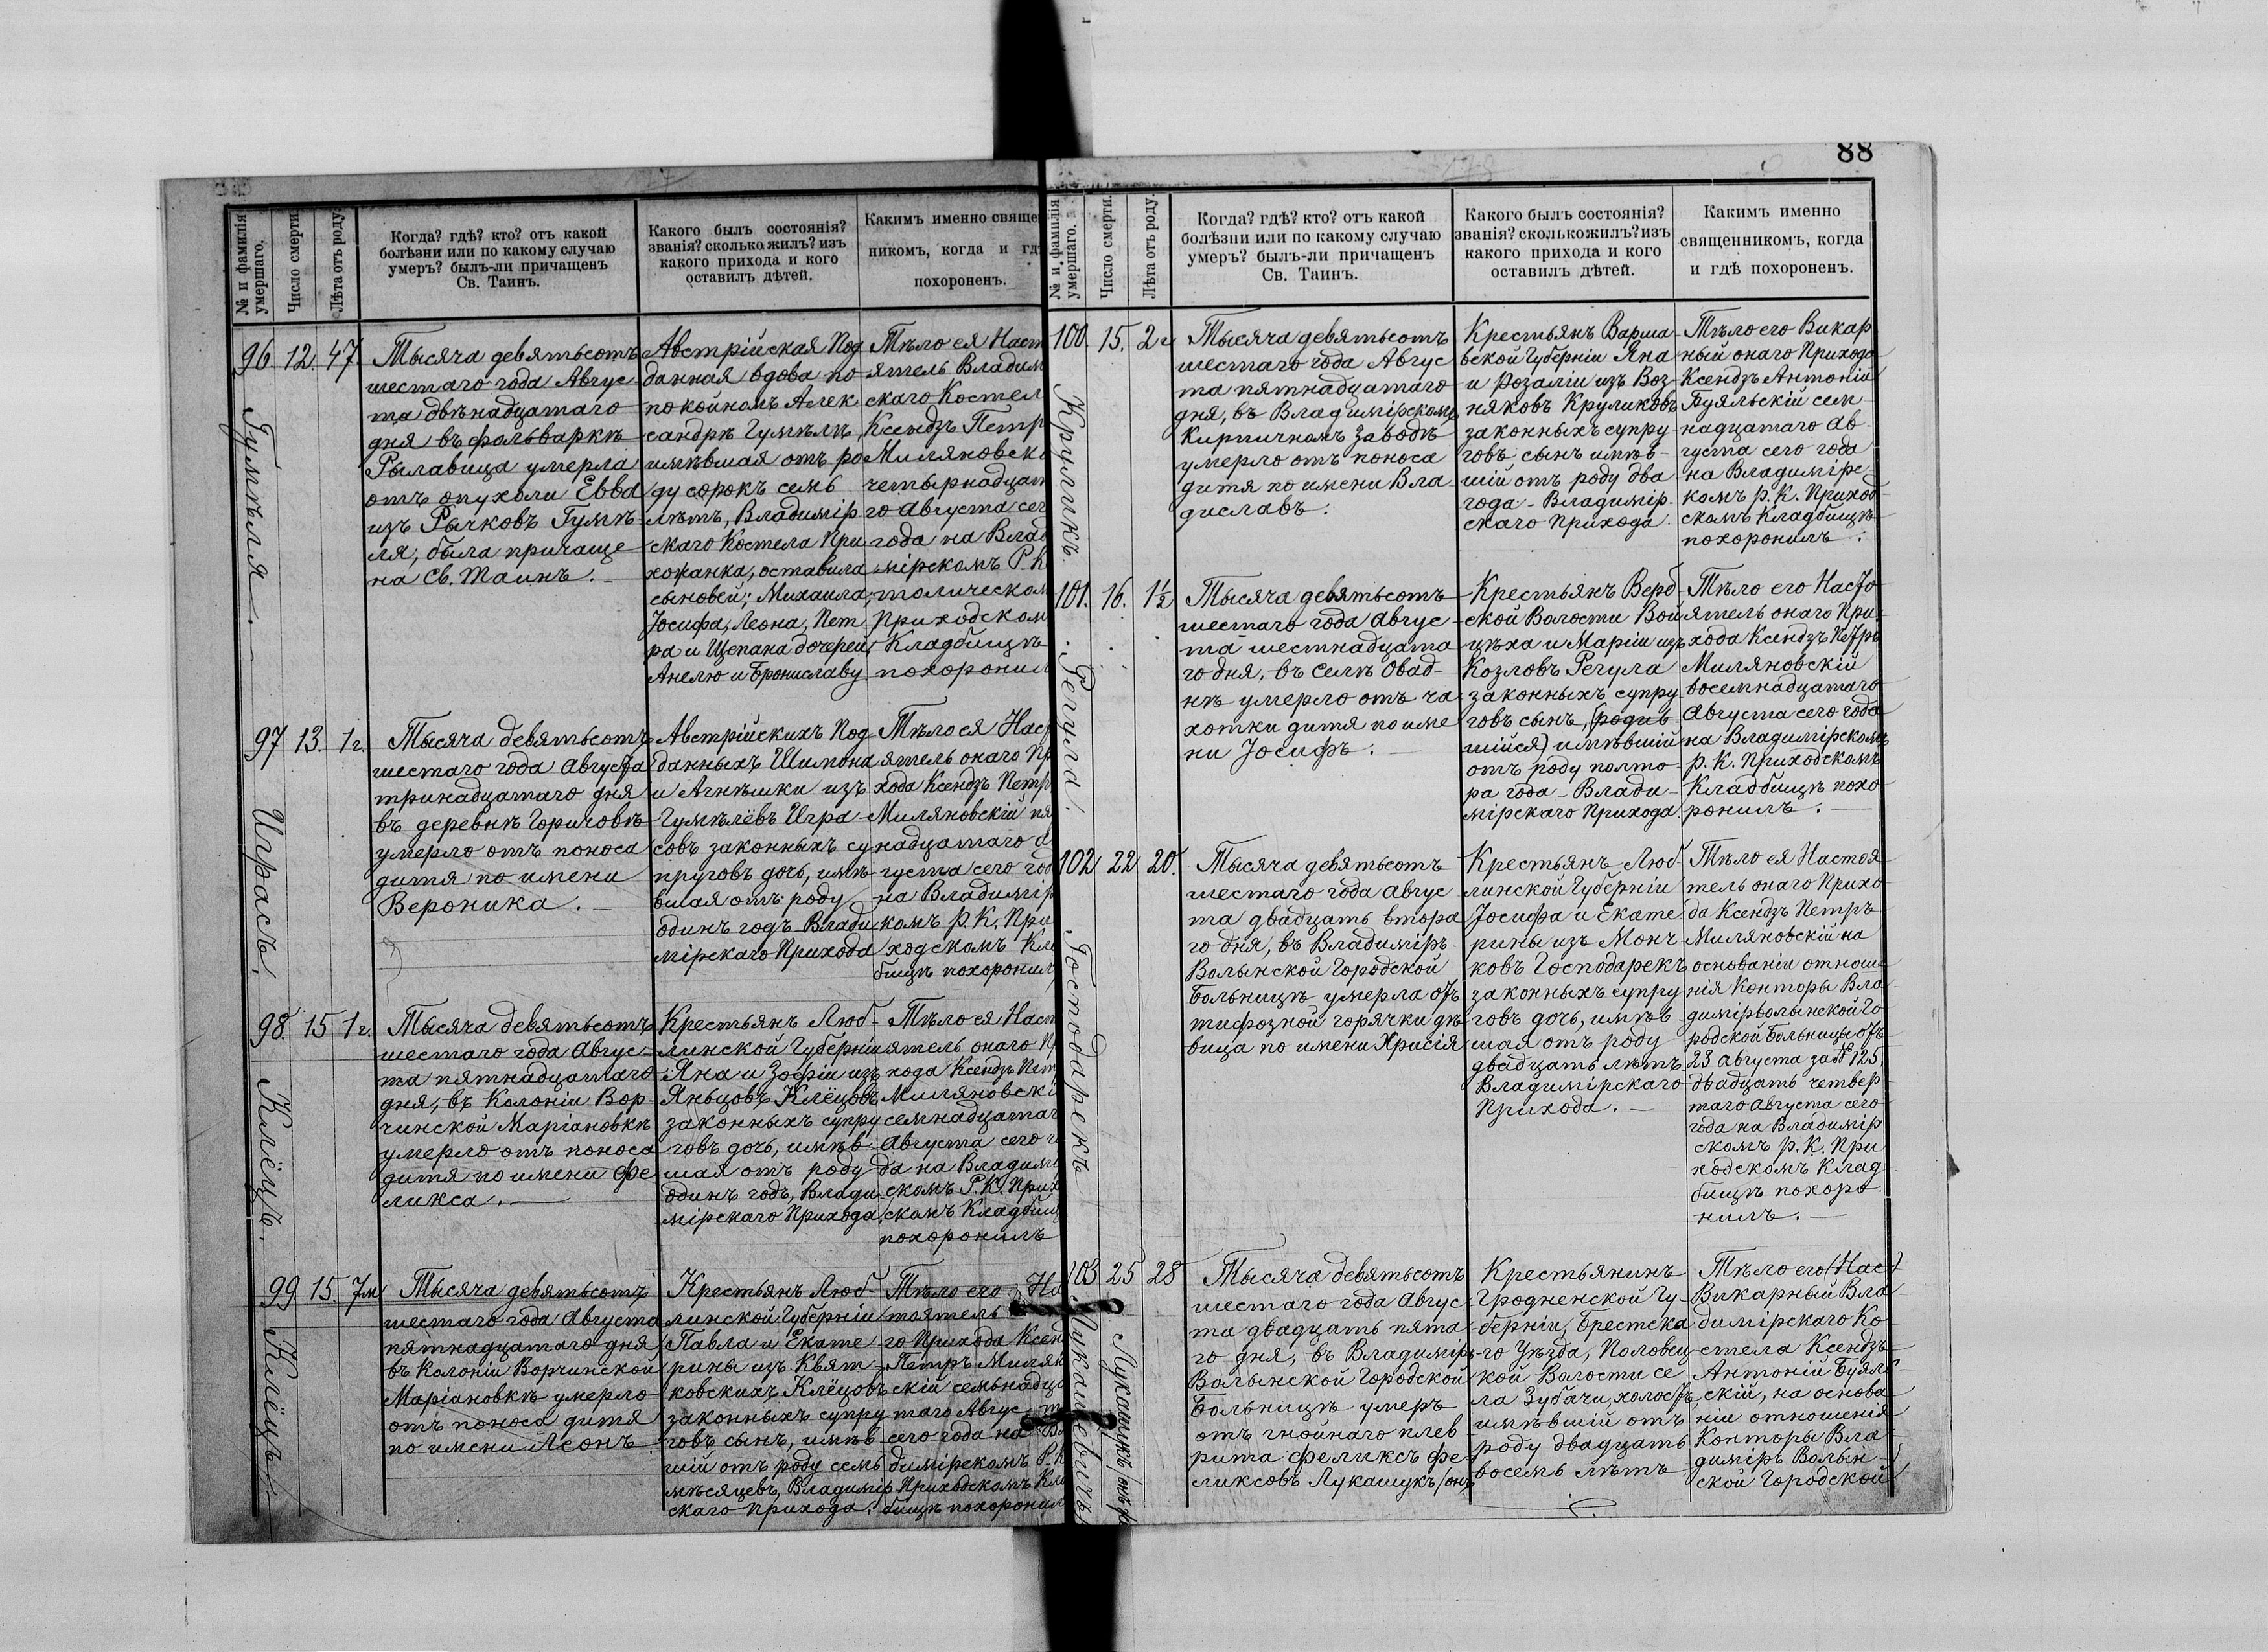 88
№ и фамилія умершаго.
Число смерти.
Лѣта отъ роду.
Когда? гдѣ? кто? отъ какой
болѣзни или по какому случаю
умеръ? былъ-ли причащенъ
Св. Таинъ.
Какого былъ состоянія?
званія? сколько жилъ? изъ
какого прихода и кого
оставилъ дѣтей.
Какимъ именно свяще
никомъ, когда и гд
похороненъ.
96 12. 47.
Гумѣля.
Тысяча девятьсотъ
шестаго года Авгус
та двѣнадцатаго
дня въ фольваркѣ
Рылавица умерла
отъ опухоли Евва
изъ Рычковъ Гумѣ-
ля, была причаще
на Св. Таинъ.
Австрійская Под
данная вдова по
покойномъ Алек
сандрѣ Гумѣлѣ,
имѣвшая отъ ро
ду сорокъ семь
лѣтъ, Владимір
скаго Костела При
хожанка, оставила
сыновей; Михаила,
Іосифа, Леона, Пет
ра и Щепана дочерей
Анелю и Брониславу
Тѣло ея Наст
ятель Владим
скаго Костел
Ксендзъ Петр
Миляновск
четырнадцат
го Августа сег
года на Влад
мірскомъ Р. К
толическом
Приходском
Кладбищѣ
похоронил
97 13. 1 г.
Играсъ.
Тысяча девятьсотъ
шестаго года Августа
тринадцатаго дня
въ деревнѣ Горичовкѣ
умерло отъ поноса
дитя по имени
Вероника.
Австрійскихъ Под
данныхъ Шимона
и Агнѣшки изъ
Гумѣлёвъ Игра-
совъ законныхъ су
пруговъ дочь, имѣ-
вшая отъ роду
одинъ годъ Влади
мірскаго Прихода
Тѣло ея Наст
ятель онаго Пр
хода Ксендзъ Петр
Миляновскій пя
надцатаго а
густа сего год
на Владимір
комъ р. К. При
ходскомъ Кла
бищѣ похоронил
98. 15 1 г.
Клёцъ.
Тысяча девятьсотъ
шестаго года Авгус-
та пятнадцатаго
дня, въ Колоніи Вор-
чинской Маріановкѣ
умерло отъ поноса
дитя по имени Фе
ликса.
Крестьянъ Люб-
линской Губерніи
Яна и Зофіи изъ
Яньцовъ Клёцовъ
законныхъ супру
говъ дочь, имѣв-
шая отъ роду
одинъ годъ, Влади
мірскаго Прихода
Тѣло ея Наст
ятель онаго П
хода Ксендзъ Пет
Миляновск
семнадцатаг
Августа сего г
да на Владими
скомъ Р. К. Прих
скомъ Кладбищ
похоронилъ
99. 15. 7 м
Клёцъ
Тысяча девятьсотъ
шестаго года Августа
пятнадцатаго дня
въ Колоніи Ворчинской
Маріановкѣ умерло
отъ поноса дитя
по имени Леонъ
Крестьянъ Люб-
линской Губерніи
Павла и Екате
рины изъ Квят-
ковскихъ Клёцовъ
законныхъ супру
говъ сынъ, имѣв
шій отъ роду семь
мѣсяцевъ, Владимір
скаго Прихода.
Тѣло его На
тоятель
го Прихода Ксен
Петръ Милян
скій семьнадца
таго Авгус т
сего года на В
димірскомъ Р. К
Приходскомъ Кла
бищѣ похоронил
№ и фамилія умершаго.
Число смерти.
Лѣта отъ роду.
Когда? гдѣ? кто? отъ какой
болѣзни или по какому случаю
умеръ? былъ-ли причащенъ
Св. Таинъ.
Какого былъ состоянія?
званія? сколько жилъ? изъ
какого прихода и кого
оставилъ дѣтей.
Какимъ именно
священникомъ, когда
и гдѣ похороненъ.
100. 15. 2 г
Круликъ.
Тысяча девятьсотъ
шестаго года Авгус
та пятнадцатаго
дня, въ Владимірскомъ
Кирпичномъ Заводѣ
умерло отъ поноса
дитя по имени Вла
диславъ.
Крестьянъ Варша-
вской Губерніи Яна
и Розаліи изъ Воз-
няковъ Круликовъ
законныхъ супру-
говъ сынъ имѣв-
шій отъ роду два
года - Владимір-
скаго Прихода.
Тѣло его Викар
ный онаго Прихода
Ксендзъ Антоній
Буяльскій сем
надцатаго ав-
густа сего года
на Владимірс-
комъ р. К. Приход
скомъ Кладбищѣ
похоронилъ.
101. 16. 1½
Регула.
Тысяча девятьсотъ
шестаго года Авгус-
та шестнадцата
го дня, въ Селѣ Овад-
нѣ умерло отъ ча
хотки дитя по име
ни Іосифъ.
Крестьянъ Верб
ской Волости Вой
цѣха и Маріи изъ
Козловъ Регула
законныхъ супру
говъ сынъ, (родив
шійся) имѣвшій
отъ роду полто-
ра года - Влади-
мірскаго Прихода.
Тѣло его Насто
ятель онаго При-
хода Ксендзъ Петръ
Миляновскій
восемнадцатаго
Августа сего года
на Владимірскомъ
р. К. Приходскомъ
Кладбищѣ похо
ронилъ.
102 22 20.
Господарекъ
Тысяча девятьсотъ
шестаго года Авгус
та двадцать втора
го дня, въ Владимірѣ-
Волынской Городской
Больницѣ умерла отъ
тифозной горячки дѣ
вица по имени Хрисія
Крестьянъ Люб-
линской Губерніи
Іосифа и Екате
рины изъ Монч-
ковъ Господарекъ
законныхъ супру
говъ дочь, имѣв
шая отъ роду
двадцать лѣтъ
Владимірскаго
Прихода.
Тѣло ея Настоя
тель онаго Прихо
да Ксендзъ Петръ
Миляновскій на
основаніи отноше
нія Конторы Вла
димірволынской Го
родской Больницы отъ
23 Августа за № 125,
двадцать четвер
таго Августа сего
года на Владимір
скомъ р. К. При
ходскомъ Клад
бищѣ похоро
нилъ.
103 25 28
Лукашевичъ
Лукашукъ
Тысяча девятьсотъ
шестаго года Авгус
та двадцать пята
го дня, въ Владимірѣ-
Волынской Городской
Больницѣ умеръ
отъ гнойнаго плев
рита Феликсъ Фе
ликсовъ Лукашукъ (онъ
Крестьянинъ
Гродненской Гу-
берніи, Брестска
го Уѣзда, Половец
кой Волости се
ла Зубачи, холостъ,
имѣвшій отъ
роду двадцать
восемь лѣтъ
Тѣло его (Нас)
Викарный Вла
димірскаго Ко-
стела Ксендзъ
Антоній Буяль
скій, на основа
ніи отношенія
Конторы Вла
димір Волын
ской Городской